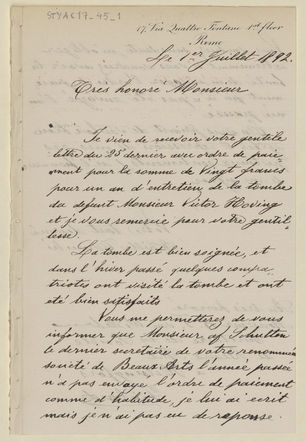 STYA617_45_1
17, Via Quattro Fontane 1st floor
Rome
Le 1er Juillet 1892.
Très honoré Monsieur
Je vien de recevoir votre gentile
lettre du 25 dernier avec ordre de paie-
ment pour la somme de Vingt francs
pour un an d'entretien de la tombe
du defunt Monsieur Victor Hoving
et je vous remercie pour votre gentil-
lesse.
La tombe est bien soignée, et
dans l'hiver passé quelques compa-
triotes ont visité la tombe et ont
été bien satisfaits
Vous me permetterez de vous
informer que Monsieur af Schultén
le dernier secretaire de votre renommée
société de Beaux Arts l'année passée
n'a pas envoye l'ordre de paiement
comme d'habitude, je lui ai ecrit
mais je n'ai pas eu de reponse.